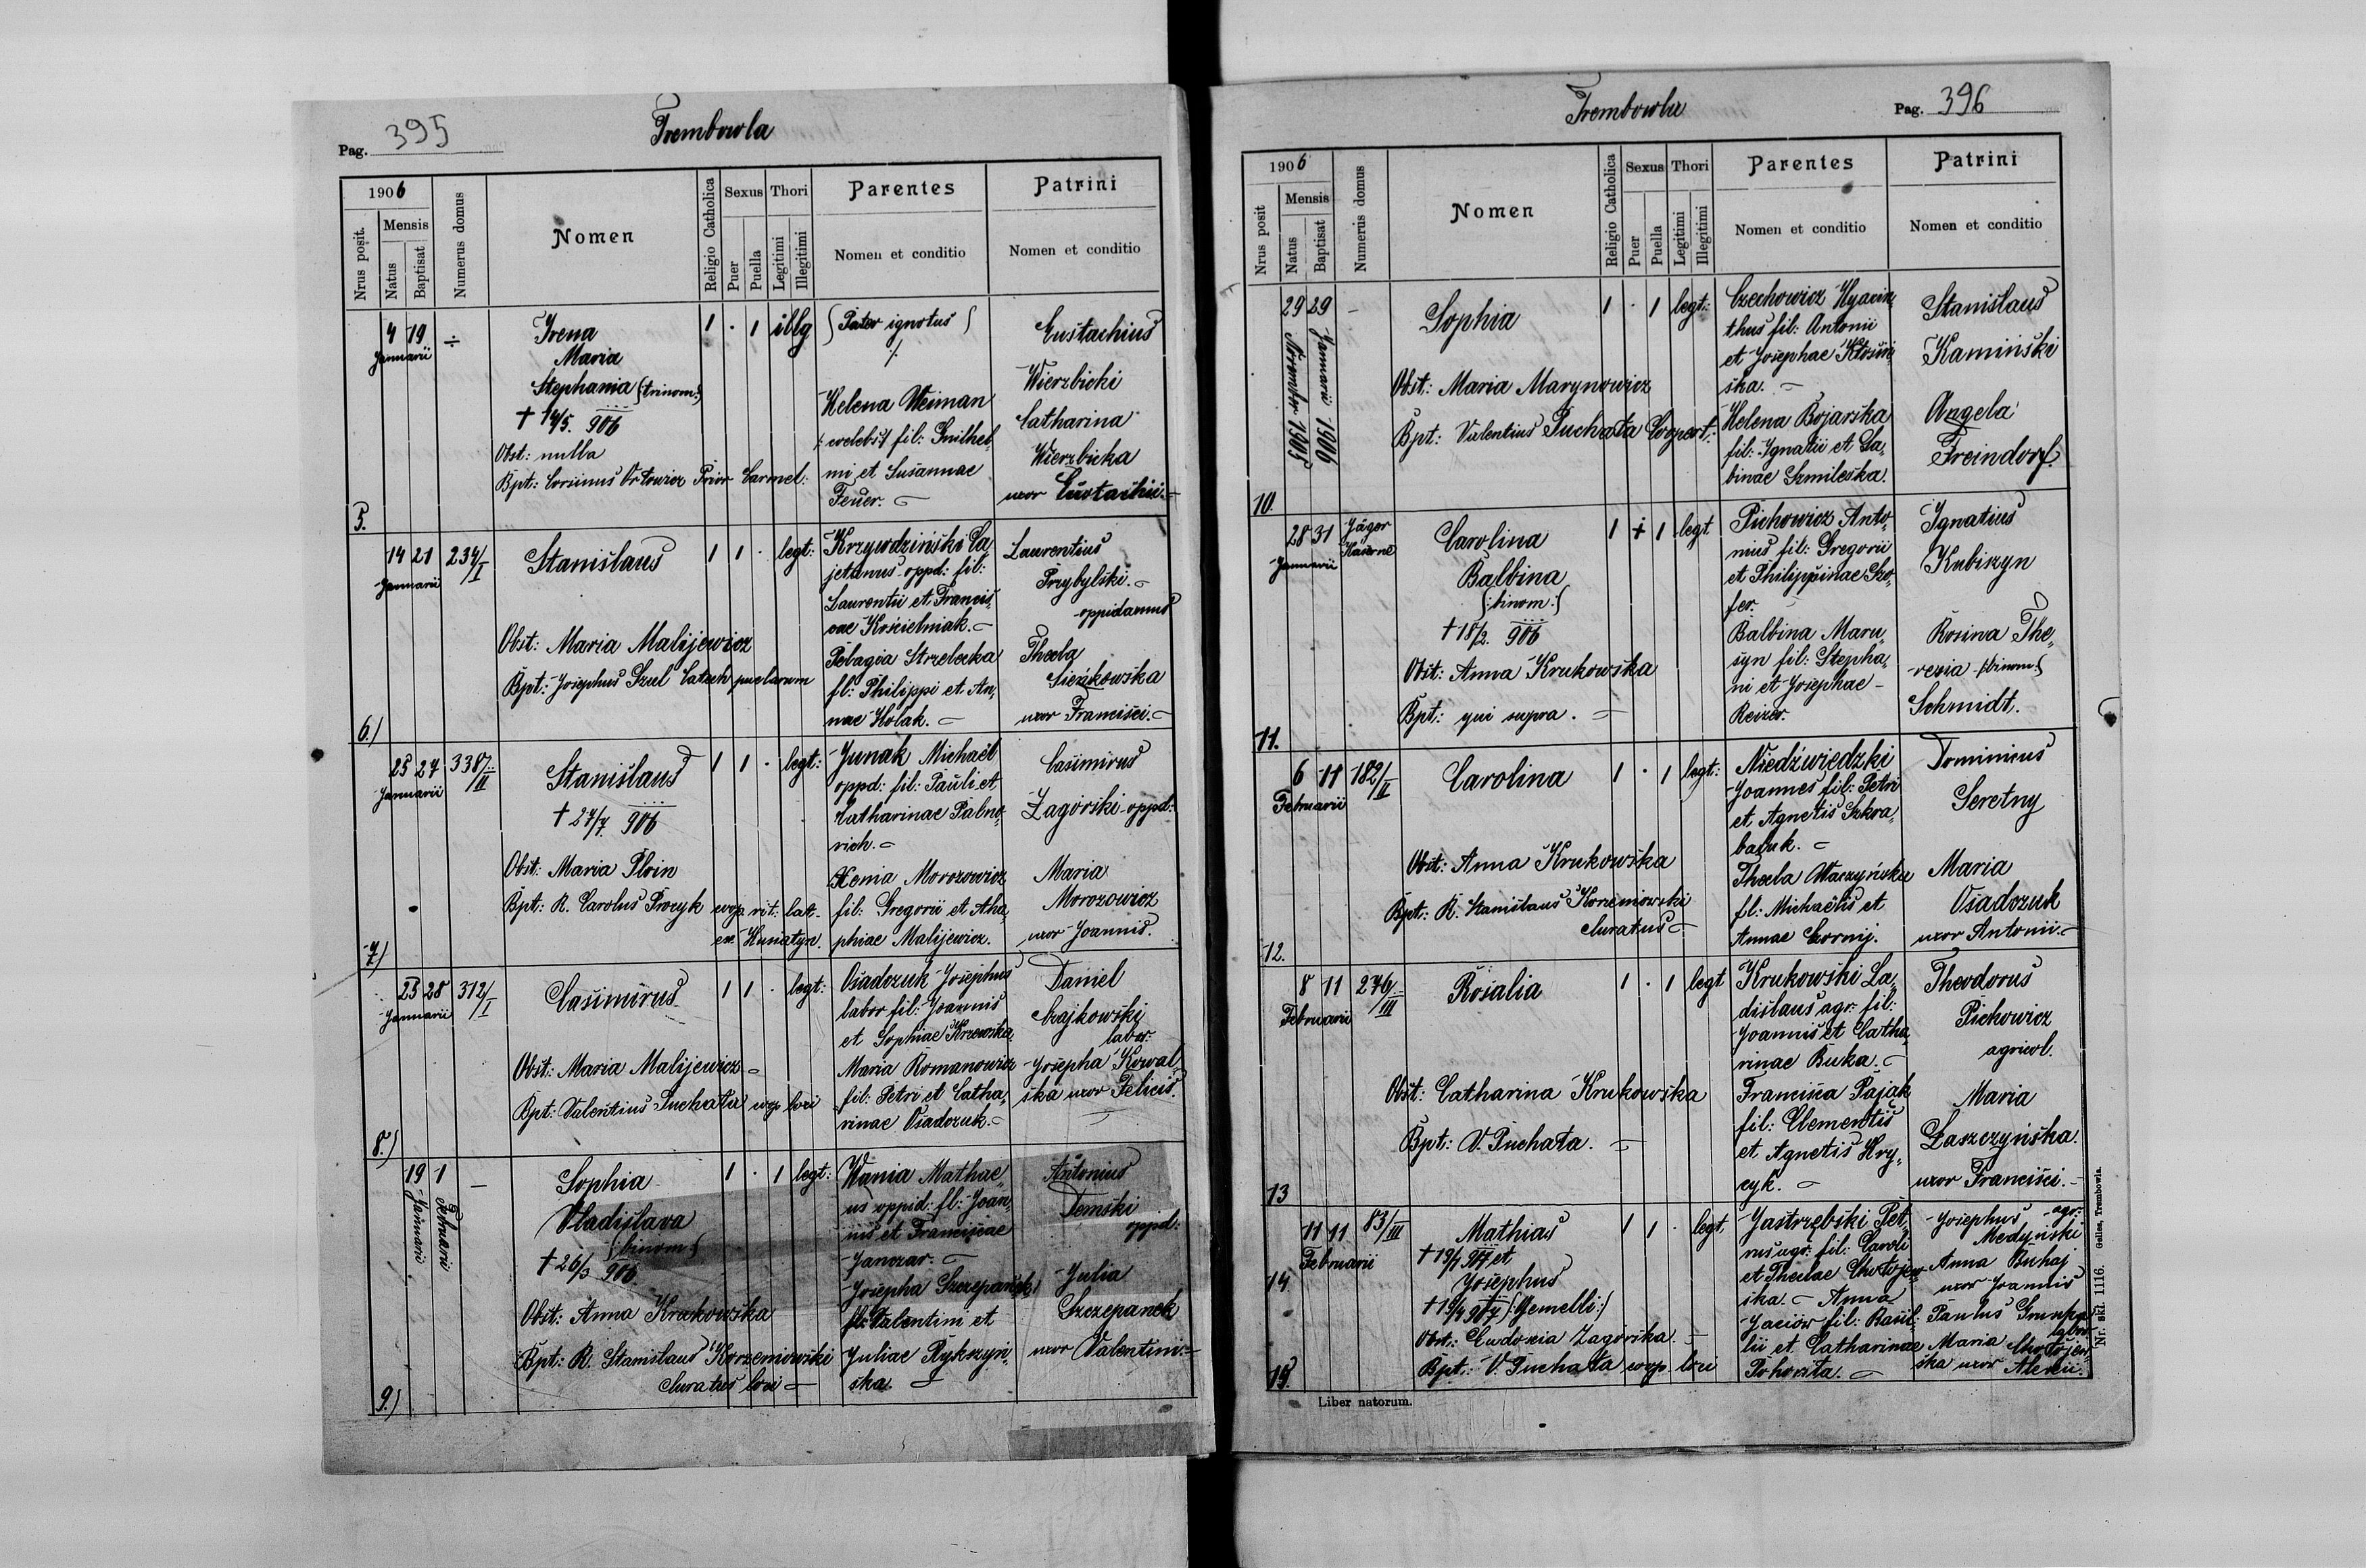 Pag. 395
Trembowla
1906
Nrus posit.
Mensis
Natus
Baptisat
Numerus domus
Nomen
Religio Catholica
Sexus
Puer
Puella
Thori
Legitimi
Illegitimi
Parentes
Nomen et conditio
Patrini
Nomen et conditio
5.
4 19
Januarii
÷
Irena
Maria
Stephania (trinom:)
† 14/5. 906
Obst: nulla
Bpt: Prior Carmel:
1 · 1 illg
(Pater ignotus)
Helena Weiman
fil: Guilhel
mi et Susannae
Feuer.
Eustachius
Wierzbicki
Catharina
Wierzbicka
uxor Eustachii
6.)
14 21 234/I
Januarii
Stanislaus
Obst: Maria Malijewicz
Bpt: Josephus Szul Catech puelarum
1 1 · legt:
Krzywdziński Ca
jetanus oppd: fil:
Laurentii et Francis,
cae Kościelniak.
Pelagia Strzelecka
fl: Philippi et An,
nae Holak.
Laurentius
Przybylski.
oppidanus
Thecla
Sieńkowska
uxor Francisci.
7)
25 27 338/II
Januarii
Stanislaus
† 27/7 906
Obst: Maria Ploin
Bpt: R. Carolus Procyk coop rit: lat.
ex Husiatyn.
1 1 · legt:
Junak Michaël
oppd: fil: Pauli et
Catharinae Palno,
rich.
Xenia Morozowicz
fil: Gregorii et Aha,
phiae Malijewicz.
Casimirus
Zagórski oppd:
Maria
Morozowicz
uxor Joannis.
8.)
25 28 312/I
Januarii
Casimirus
Obst: Maria Malijewicz
Bpt: Valentius Puchała coop loci
1 1 · legt:
Osadczuk Josephus
labor fil: Joannis
et Sophiae
Maria Romanowicz
fil: Petri et Catha,
rinae Osadczuk.
Daniel
Czajkowskij
labor:
Josepha Kowal
ska uxor Felicis.
9.)
19 1
Januarii
Februarii
—
Sophia
Vladislava
(binom)
† 26/3 906
Obst: Anna Krukowska
Bpt: R. Stanislaus Korzeniowski
Curatus loci
1 · 1 legt:
Wania Mathae,
us oppid: fl: Joan,
nis et Franciscae
Janczar.
Josepha Szczepanek
fl: Valentini et
Juliae Rykszyń,
ska
Antonius
Demski
oppd:
Julia
Szczepanek
uxor Valentini.
Trembowla
Pag. 396
1906
Nrus posit
Mensis
Natus
Baptisat
Numerus domus
Nomen
Religio Catholica
Sexus
Puer
Puella
Thori
Legitimi
Illegitimi
Parentes
Nomen et conditio
Patrini
Nomen et conditio
10.
29 29 -
Novembr. 1905
Januarii 1906
Sophia
Obst: Maria Marynowicz
Bpt: Valentius Puchała Cooperat.:
1 · 1 legt:
Czechowicz Hyacin,
thus fil: Antonii
et Josephae Kłosiń
ska.
Helena Bojarska
fil: Ignatii et Sa,
binae Szmileska.
Stanislaus
Kamiński
Angela
Freindorf.
11.
28 31 Jäger
Kaserne
Januarii
Carolina
Balbina
(:binom:)
† 18/2. 906
Obst: Anna Krukowska
Bpt: qui supra.
1 + 1 legt.
Pichowicz Anto,
nius fil: Gregorii
et Philippinae Szo,
fer.
Balbina Maru,
syn fil: Stepha,
ni et Josephae
Reizer.
Ignatius
Kubiszyn
Rosina The,
resia (:binom:)
Schmidt.
12.
6 11 182/II
Februarii
Carolina
Obst: Anna Krukowska
Bpt: R. Stanislaus Korzeniowski
Curatus
1 · 1 legt:
Niedźwiedzki
Joannes fil: Petri
et Agnetis Szkra,
baluk.
Thecla Waczyńska
fl: Michaëlis et
Annae Czornij.
Dominicus
Seretny
Maria
Osadczuk
uxor Antonii.
13
8 11 276/III
Februarii
Rosalia
Obst: Catharina Krukowska
Bpt: V. Puchała.
1 · 1 legt
Krukowski La,
dislaus agr: fil:
Joannis et Catha,
rinae Buka.
Francisca Pająk
fil: Clementis
et Agnetis Hry,
cyk.
Theodorus
Pichowicz
agricol.
Maria
Łaszczyńska.
uxor Francisci.
14.
15.
11 11 83/III
Februarii
Mathias
† 19/7 907 et
Josephus
† 19/4 907 (:Gemelli:)
Obst: Eudoxia Zagórska.
Bpt: V. Puchała coop. loci
1 1 · legt.
Jastrzębski Pet,
rus agr. fil: Caroli
et Theclae Chotojew
ska. Anna
Jaciów fil: Basil
lii et Catharinae
Pohorita.
Josephus agr:
Medyński
Anna Buhaj
uxor Joannis
Paulus
labor
Maria Chotojew
ska uxor Alexii.
Liber natorum.
Nr. skł. 1116. Galles, Trembowla.